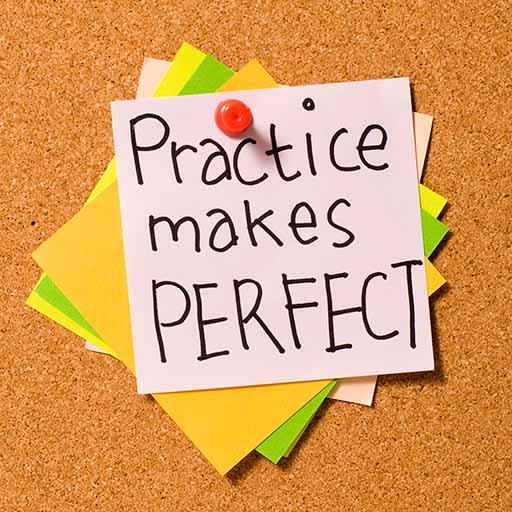 Practice
makes
PERFECT